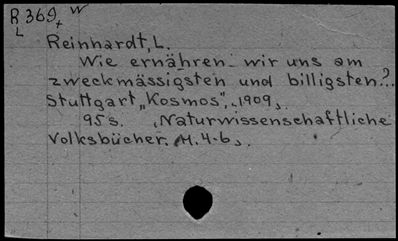 R 369, W
L
Reinhardt, L.
Wie ernähren wir uns am
zweckmässigsten und billigsten?.
Stuttgart, „Kosmos", 1909,.
95 s. Naturwissenschaftliche
Volksbücher. H. 4-6,.